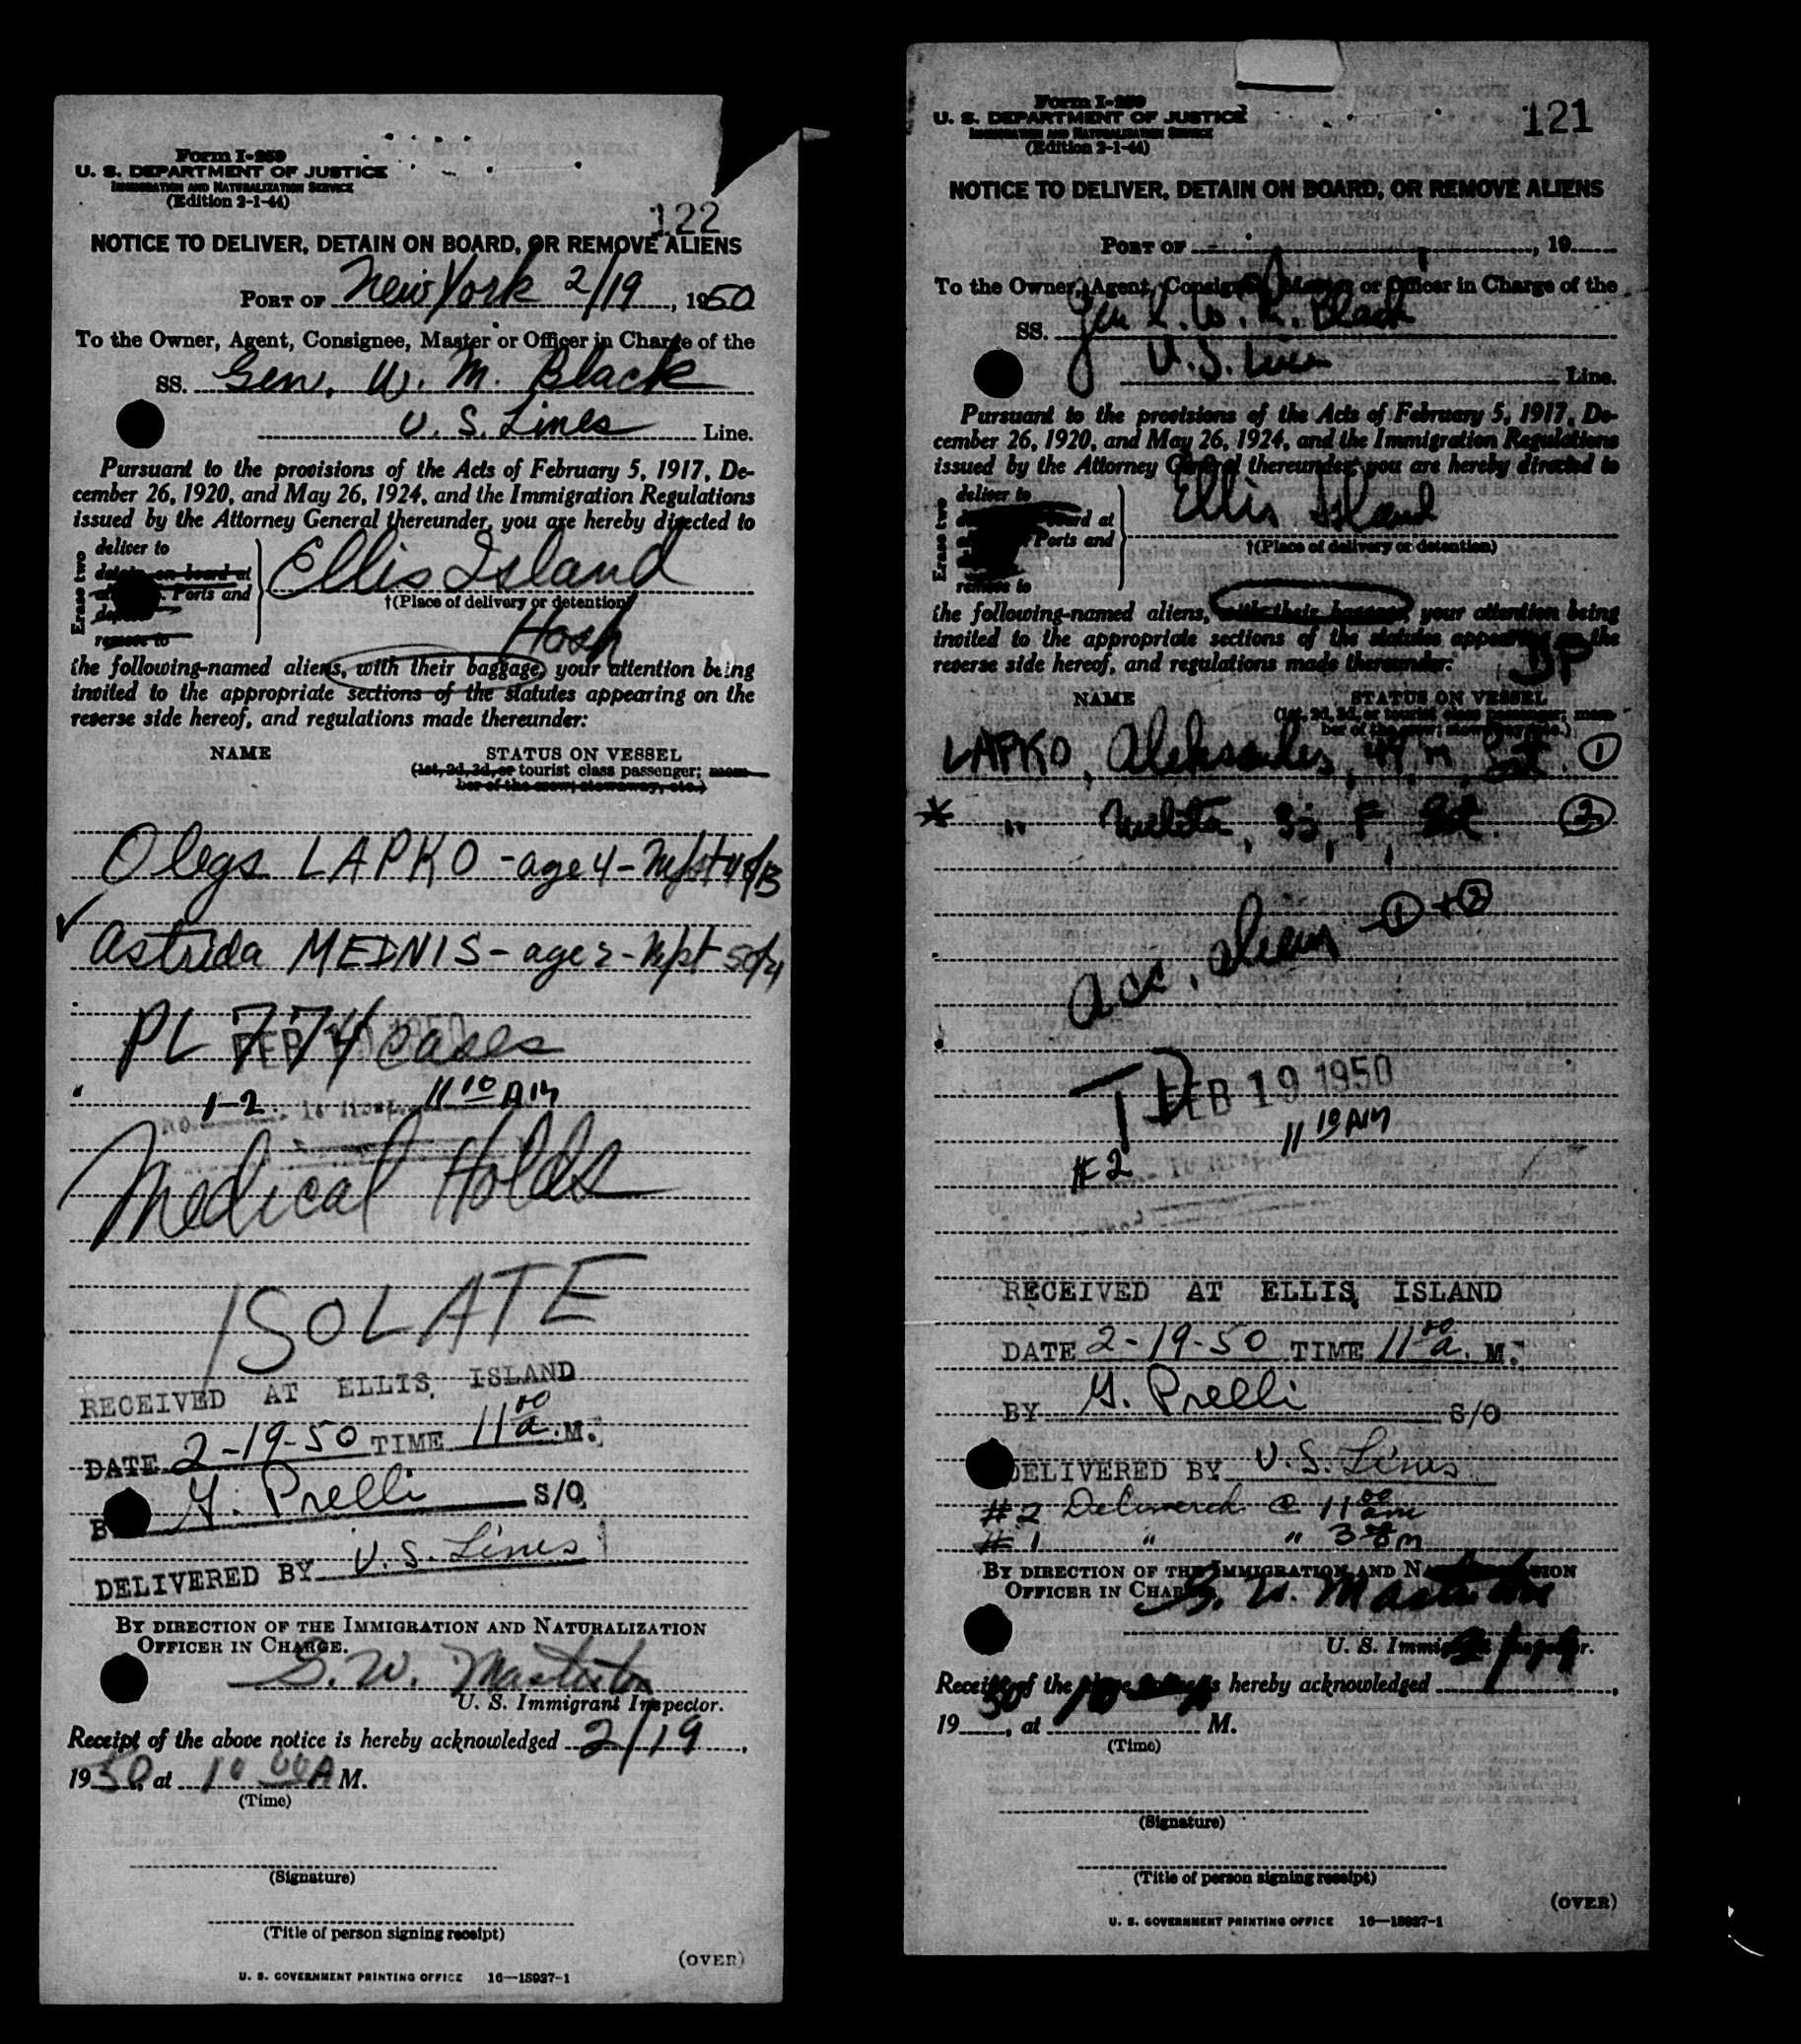 Form I-259
U. S. DEPARTMENT OF JUSTICE
IMMIGRATION AND NATURALIZATION SERVICE
(Edition 2-1-44)
122
NOTICE TO DELIVER, DETAIN ON BOARD, OR REMOVE ALIENS
PORT OF New York 2/19, 1950
To the Owner, Agent, Consignee, Master or Officer in Charge of the
SS. Gen. W. M. Black
U. S. Lines Line.
Pursuant to the provisions of the Acts of February 5, 1917, De-
cember 26, 1920, and May 26, 1924, and the Immigration Regulations
issued by the Attorney General thereunder, you are hereby directed to
Erase two
deliver to
detain on board at
Ports and
remove to
Ellis Island
†(Place of delivery or detention)
Hosp
the following-named aliens, with their baggage, your attention being
invited to the appropriate sections of the statutes appearing on the
reverse side hereof, and regulations made thereunder:
NAME STATUS ON VESSEL
(1st, 2d, 3d, or tourist class passenger; mem-
ber of the crew; stowaway, etc.)
Olegs LAPKO - age 4 -
Astrida MEDNIS - age 2 -
PL 774 cases
1-2 11 10 AM
Medical Holds
ISOLATE
RECEIVED AT ELLIS ISLAND
DATE 2-19-50 TIME 11 00 a. M.
G. Prelli S/O
DELIVERED BY U. S. Lines
BY DIRECTION OF THE IMMIGRATION AND NATURALIZATION
OFFICER IN CHARGE.
S. W. Masterton
U. S. Immigrant Inspector.
Receipt of the above notice is hereby acknowledged 2/19,
1950, at 10 00 A M.
(Time)
(Signature)
(Title of person signing receipt)
(OVER)
U. S. GOVERNMENT PRINTING OFFICE 16—18927-1
Form I-259
U. S. DEPARTMENT OF JUSTICE
IMMIGRATION AND NATURALIZATION SERVICE
(Edition 2-1-44)
121
NOTICE TO DELIVER, DETAIN ON BOARD, OR REMOVE ALIENS
PORT OF , 19
To the Owner, Agent, Consignee, Master or Officer in Charge of the
SS. Black
U. S. Lines Line.
Pursuant to the provisions of the Acts of February 5, 1917, De-
cember 26, 1920, and May 26, 1924, and the Immigration Regulations
issued by the Attorney General thereunder, you are hereby directed to
Erase two
deliver to
board at
Ports and
remove to
Ellis Island
†(Place of delivery or detention)
the following-named aliens, with their baggage, your attention being
invited to the appropriate sections of the statutes appearing on the
reverse side hereof, and regulations made thereunder:
DP
NAME STATUS ON VESSEL
LAPKO, Aleksanders, 44, m, 1
" F 2
acc. alien 1 + 2
TD
FEB 19 1950
11 10 AM
#2
RECEIVED AT ELLIS ISLAND
DATE 2-19-50 TIME 11 00 a. M.
BY G. Prelli S/O
DELIVERED BY U. S. Lines
#2 Delivered @ 11 00 am
#1 " "
BY DIRECTION OF THE IMMIGRATION AND NATURALIZATION
OFFICER IN CHARGE
S. W. Masterton
U. S. Immigrant Inspector.
Receipt of the above notice is hereby acknowledged
1950, at M.
(Time)
(Signature)
(Title of person signing receipt)
(OVER)
U. S. GOVERNMENT PRINTING OFFICE 16—18927-1